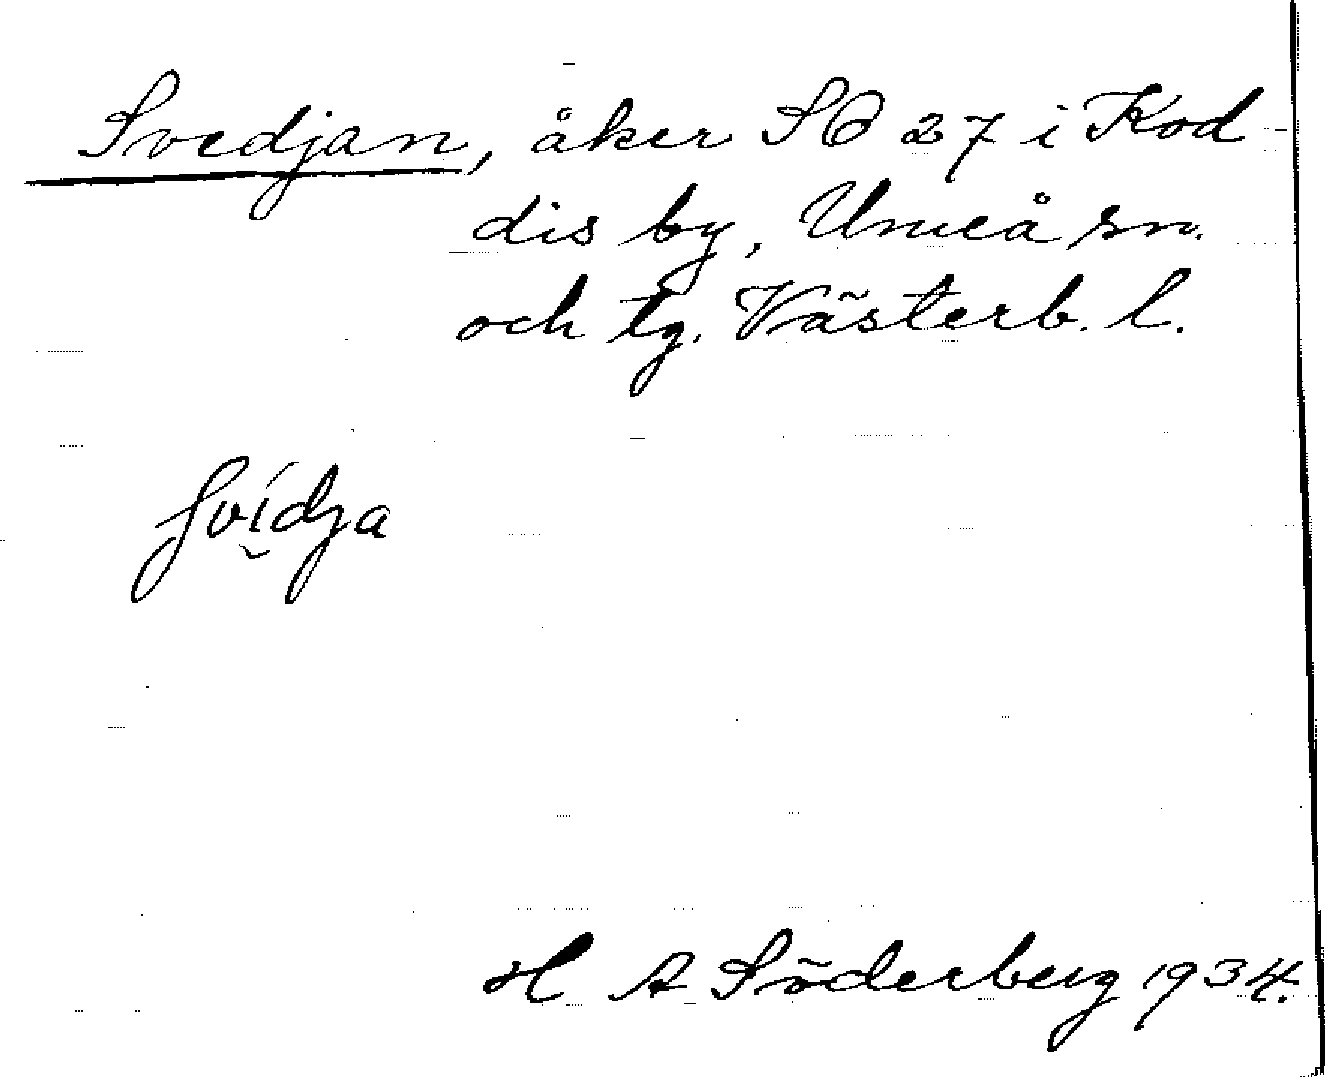 Svedjan, åker SO 27 i Kod-
dis by, Umeå sn.
och tg. Västerb. l.
svídja
H A Söderberg 1934.